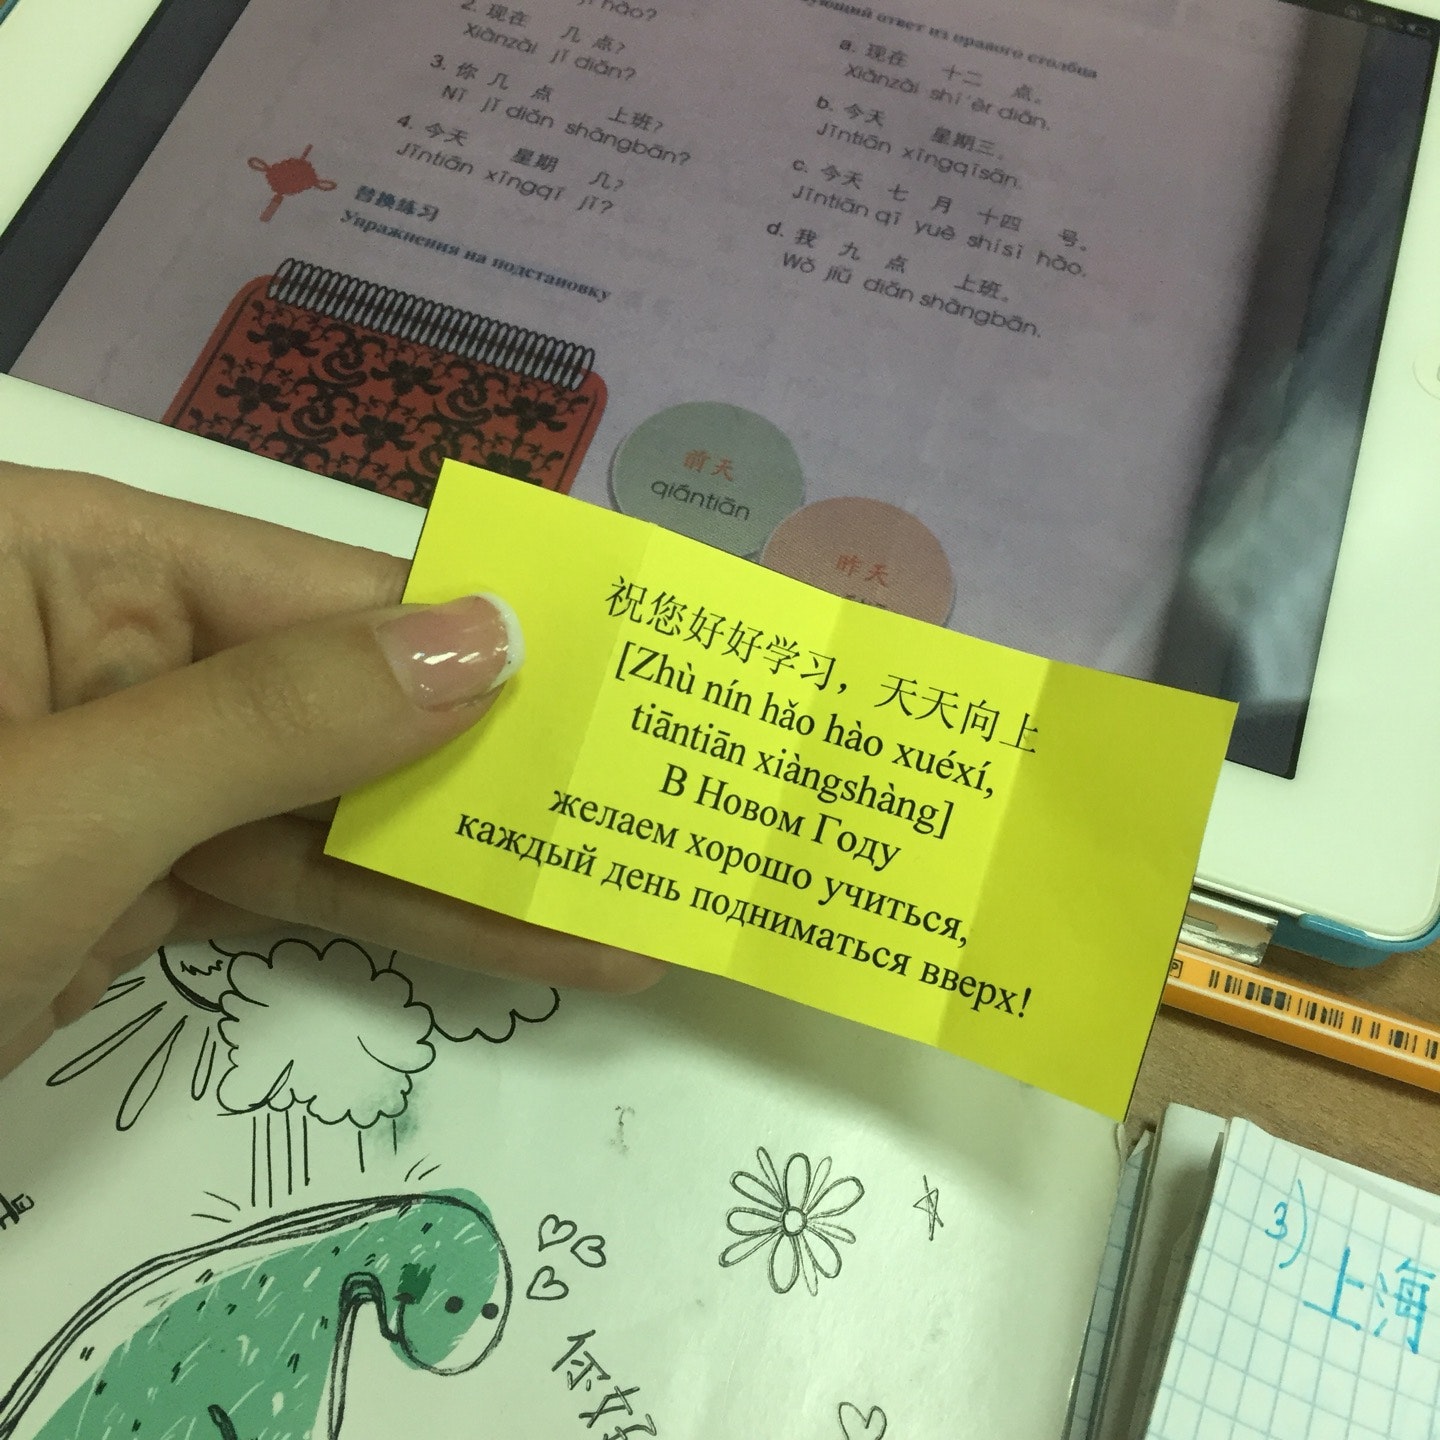 hǎo?
2. 现在 几 点?
Xiànzài jǐ diǎn?
3. 你 几 点 上班?
Nǐ jǐ diǎn shàngbān?
4. 今天 星期 几?
Jīntiān xīngqī jǐ?
ответ из правого столбца
a. 现在 十二 点。
Xiànzài shí'èr diǎn.
b. 今天 星期三。
Jīntiān xīngqīsān.
c. 今天 七 月 十四 号。
Jīntiān qī yuè shísì hào.
d. 我 九 点 上班。
Wǒ jiǔ diǎn shàngbān.
替换练习
Упражнения на подстановку
前天
qiántiān
昨天
祝您好好学习，天天向上
[Zhù nín hǎo hào xuéxí,
tiāntiān xiàngshàng]
В Новом Году
желаем хорошо учиться,
каждый день подниматься вверх!
你好
3)
上海